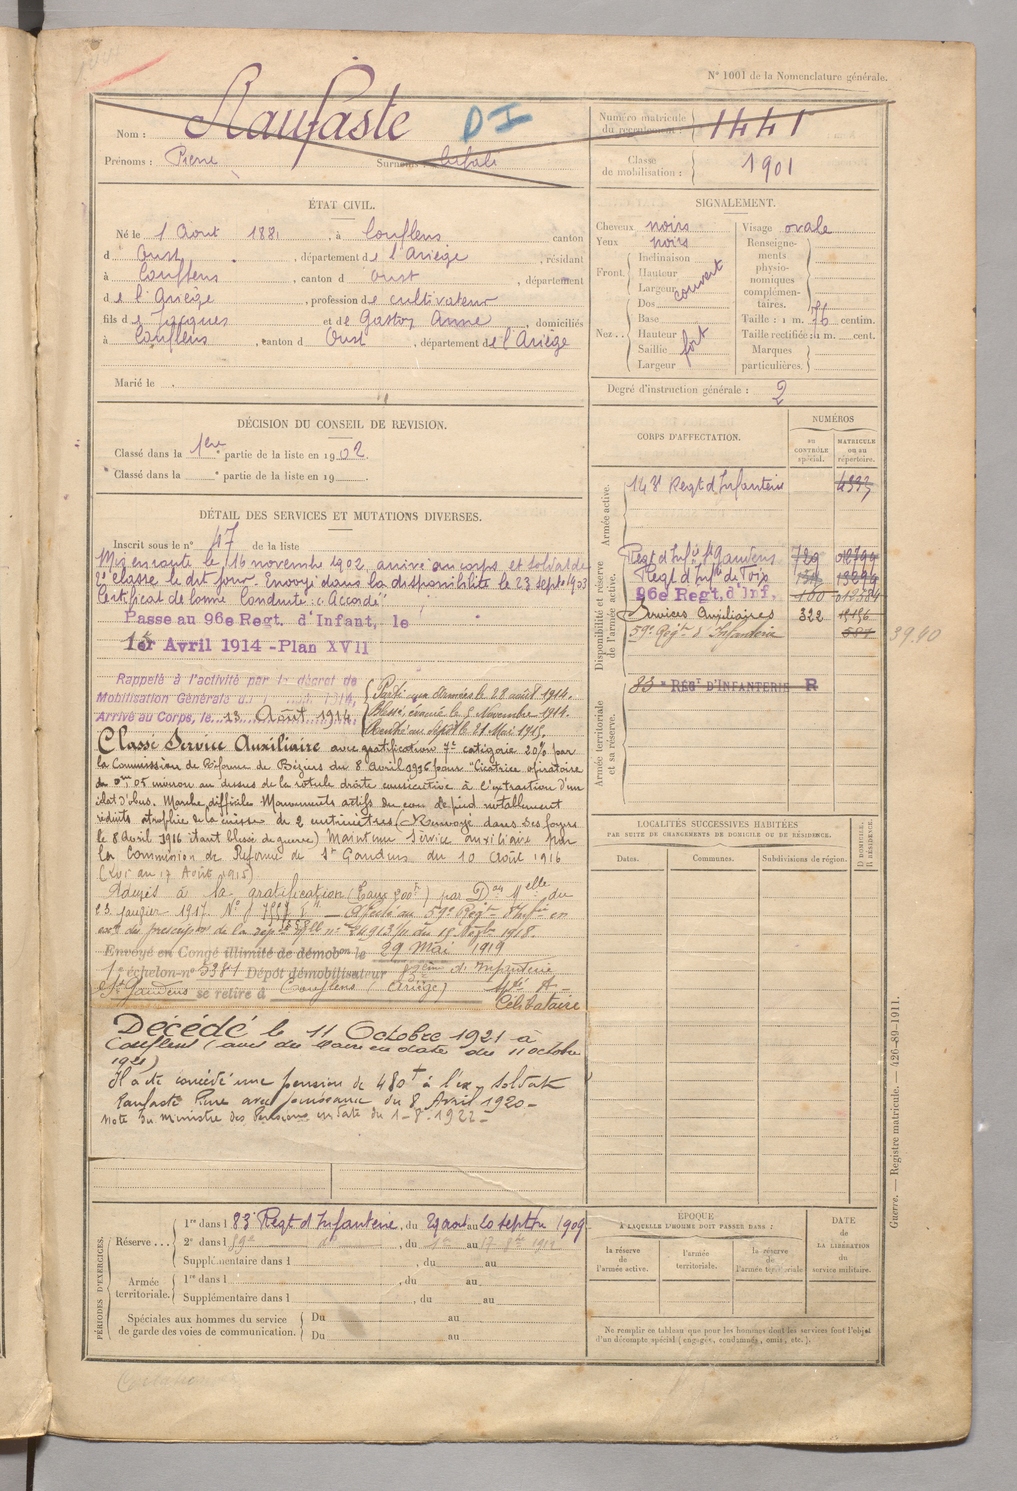 N° 1001 de la Nomenclature générale.
Nom : Raufaste
D I
Prénoms : Pierre
Surnoms :
Numéro matricule du recrutement : 1441
Classe de mobilisation : 1901
ÉTAT CIVIL.
Né le 1 Aout 1881, à Couflens canton
d Oust, département de l'Ariège, résidant
à Couflens, canton d Oust, département
de l'Ariège, profession de cultivateur
fils de Jacques et de Gaston Anne, domiciliés
à Couflens, canton d Oust, département de l'Ariège
Marié le
SIGNALEMENT.
Cheveux noirs
Yeux noirs
Front. Inclinaison Hauteur Largeur couvert
Nez... Dos Base Hauteur Saillie Largeur fort
Visage ovale
Renseignements physionomiques complémentaires.
Taille : 1 m. 76 centim.
Taille rectifiée : 1 m. cent.
Marques particulières.
Degré d'instruction générale : 2
DÉCISION DU CONSEIL DE REVISION.
Classé dans la 1ère partie de la liste en 1902.
Classé dans la e partie de la liste en 19
CORPS D'AFFECTATION.
NUMÉROS
AU CONTRÔLE spécial.
MATRICULE OU AU répertoire.
Armée active.
143e Regt d'Infanterie
Disponibilité et réserve de l'armée active.
Regt d'Infie St Gaudens 729
Regt d'Infie de Foix
96e Regt. d'Inf.
Services Auxiliaires 322
59e Regt d'Infanterie
39.40
Armée territoriale et sa réserve.
83e RÉGt D'INFANTERIE R
DÉTAIL DES SERVICES ET MUTATIONS DIVERSES.
Inscrit sous le n° 47 de la liste
Mis en route le 16 novembre 1902, arrivé au corps et soldat de
2e classe le dit jour. Envoyé dans la disponibilité le 23 septe 1903
Certificat de bonne Conduite : "Accordé"
Passe au 96e Regt. d'Infant, le
1er Avril 1914 - Plan XVII
Rappelé à l'activité par le décret de
Mobilisation Générale du 1914,
Arrivé au Corps, le 13 Août 1914
Parti aux Armées le 28 août 1914.
Blessé, évacué le 5 Novembre 1914.
Rentré au dépôt le 21 Mai 1915.
Classé Service Auxiliaire avec gratification 7e catégorie 20% par
la Commission de Réforme de Béziers du 8 Avril 1916 pour "Cicatrice opératoire
de 0m,05 environ au dessus de la rotule droite consécutive à l'extraction d'un
éclat d'obus. Marche difficile Mouvements actifs du cou de pied notablement
réduits atrophie de la cuisse de 2 centimètres (Renvoyé dans ses foyers
le 8 avril 1916 étant blessé de guerre) Maintenu Service auxiliaire par
la Commission de Réforme de St Gaudens du 10 Août 1916
(Loi du 17 Août 1915)
Admis à la gratification (Taux 200f) par Don Mielle du
23 janvier 1917. Affecté au 59e Regt d'Infie en
Envoyé en Congé illimité de démobon le 29 Mai 1919
1er échelon n° 5381 Dépôt démobilisateur 83ème d'Infanterie
St Gaudens se retire à Couflens (Ariège)
Célibataire
Décédé le 11 Octobre 1921 à
Couflens (avis du Maire en date du 11 octobre
1921)
Il a été concédé une pension de 480f à l'ex-soldat
Raufaste Pierre avec jouissance du 8 Avril 1920 -
Note du Ministre des Pensions en date du 1-8-1922 -
LOCALITÉS SUCCESSIVES HABITÉES
PAR SUITE DE CHANGEMENTS DE DOMICILE OU DE RÉSIDENCE.
Dates.
Communes.
Subdivisions de région.
D DOMICILE. R RÉSIDENCE.
PÉRIODES D'EXERCICES.
Réserve... 1re dans l 83e Regt d'Infanterie, du 29 aout au 20 septbre 1909
2e dans l 59e do, du 1er au 17 8bre 1912
Supplémentaire dans l , du au
Armée territoriale. 1re dans l , du au
Supplémentaire dans l , du au
Spéciales aux hommes du service de garde des voies de communication. Du au
Du au
ÉPOQUE
À LAQUELLE L'HOMME DOIT PASSER DANS :
la réserve de l'armée active.
l'armée territoriale.
la réserve de l'armée territoriale
DATE de LA LIBÉRATION du service militaire.
Ne remplir ce tableau que pour les hommes dont les services font l'objet
d'un décompte spécial (engagés, condamnés, omis, etc.).
Guerre. — Registre matricule. — 426-89-1911.